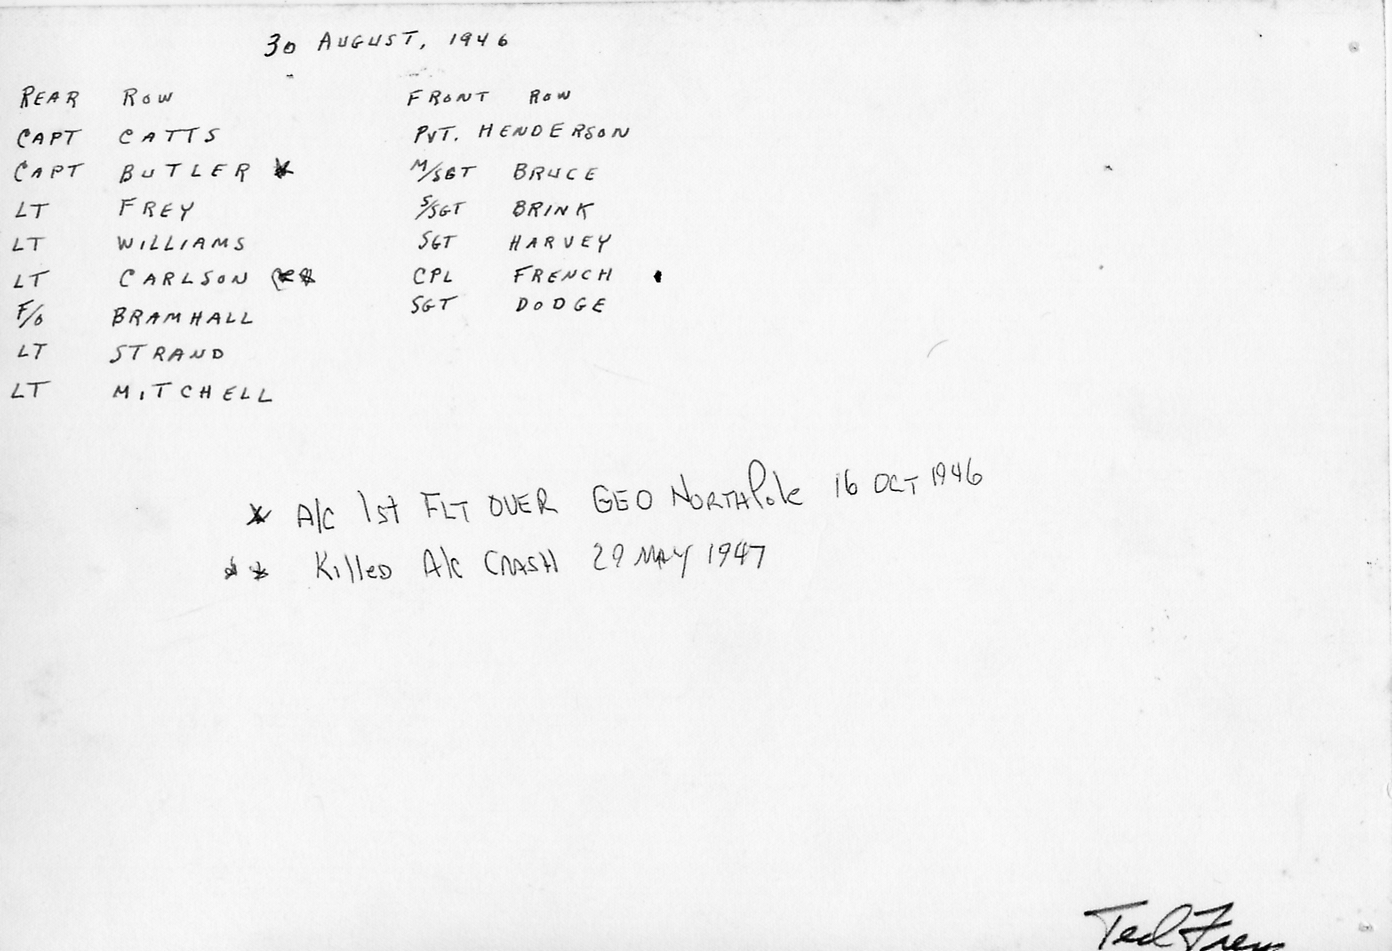 30 AUGUST, 1946
REAR ROW
CAPT CATTS
CAPT BUTLER *
LT FREY
LT WILLIAMS
LT CARLSON **
F/O BRAMHALL
LT STRAND
LT MITCHELL
FRONT ROW
PVT. HENDERSON
M/SGT BRUCE
S/SGT BRINK
SGT HARVEY
CPL FRENCH
SGT DODGE
* A/C 1st FLT OVER GEO NORTH Pole 16 OCT 1946
** Killed A/C CRASH 29 MAY 1947
Ted Frey